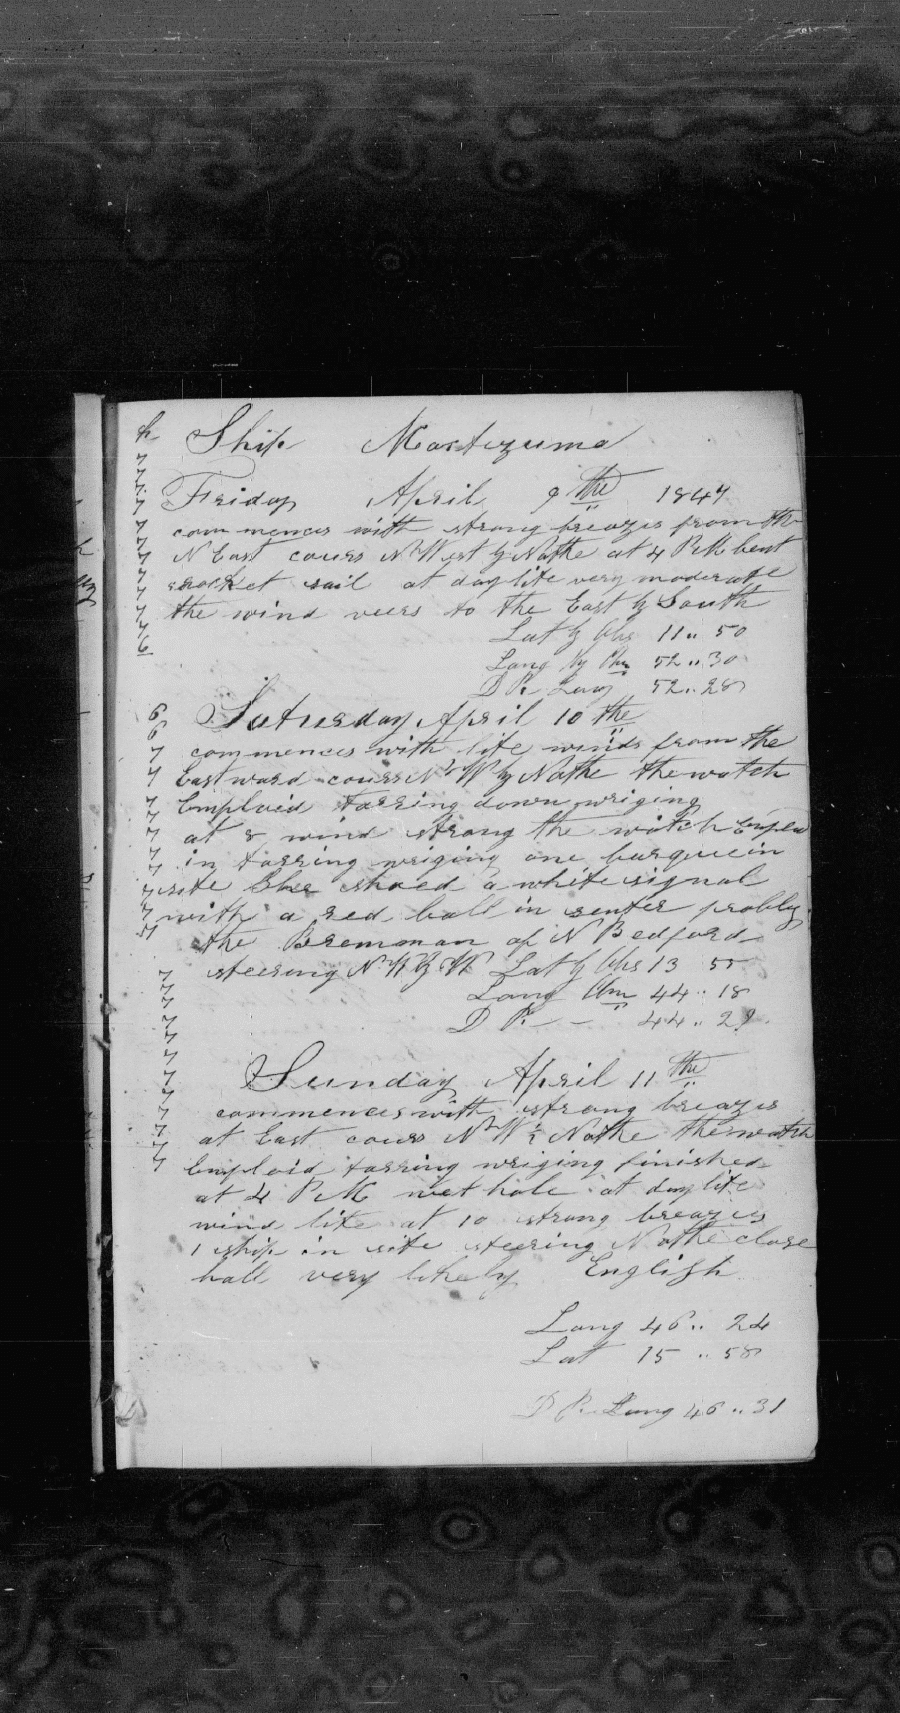 h
Ship Montezuma
7
7
7
7
7
7
7
7
7
7
7
6
Friday April 9 the 1847
commences with strong breazes from the
N East cours NWest by Nothe at 4 PM bent
sail at day lite very moderate
the wind veers to the East by South
Lat by Obs 11 .. 50
Long by Chr 52 .. 30
D R Long 52 .. 28
6
6
7
7
7
7
7
7
7
7
7
7
Saturday April 10 the
commences with lite winds from the
Eastward cours NW by Nothe the watch
Emploid tarring down wriging
at 8 wind strong the watch
in tarring wriging one barque in
site Sher shoed a white signal
with a red ball in senter
the Bremman of N Bedford
steering N W by W Lat by Obs 13 55
Long Chr 44 .. 18
D R — — 44 .. 29
7
7
7
7
7
7
7
7
7
7
7
Sunday April 11 the
commences with strong breazes
at East cours NW ½ Nothe the watch
Emploid tarring wriging finished
at 4 PM at day lite
wind lite at 10 strong breazes
1 ship in site steering Nothe close
hall very likely English
Long 46 .. 24
Lat 15 .. 58
D R Long 46 .. 31